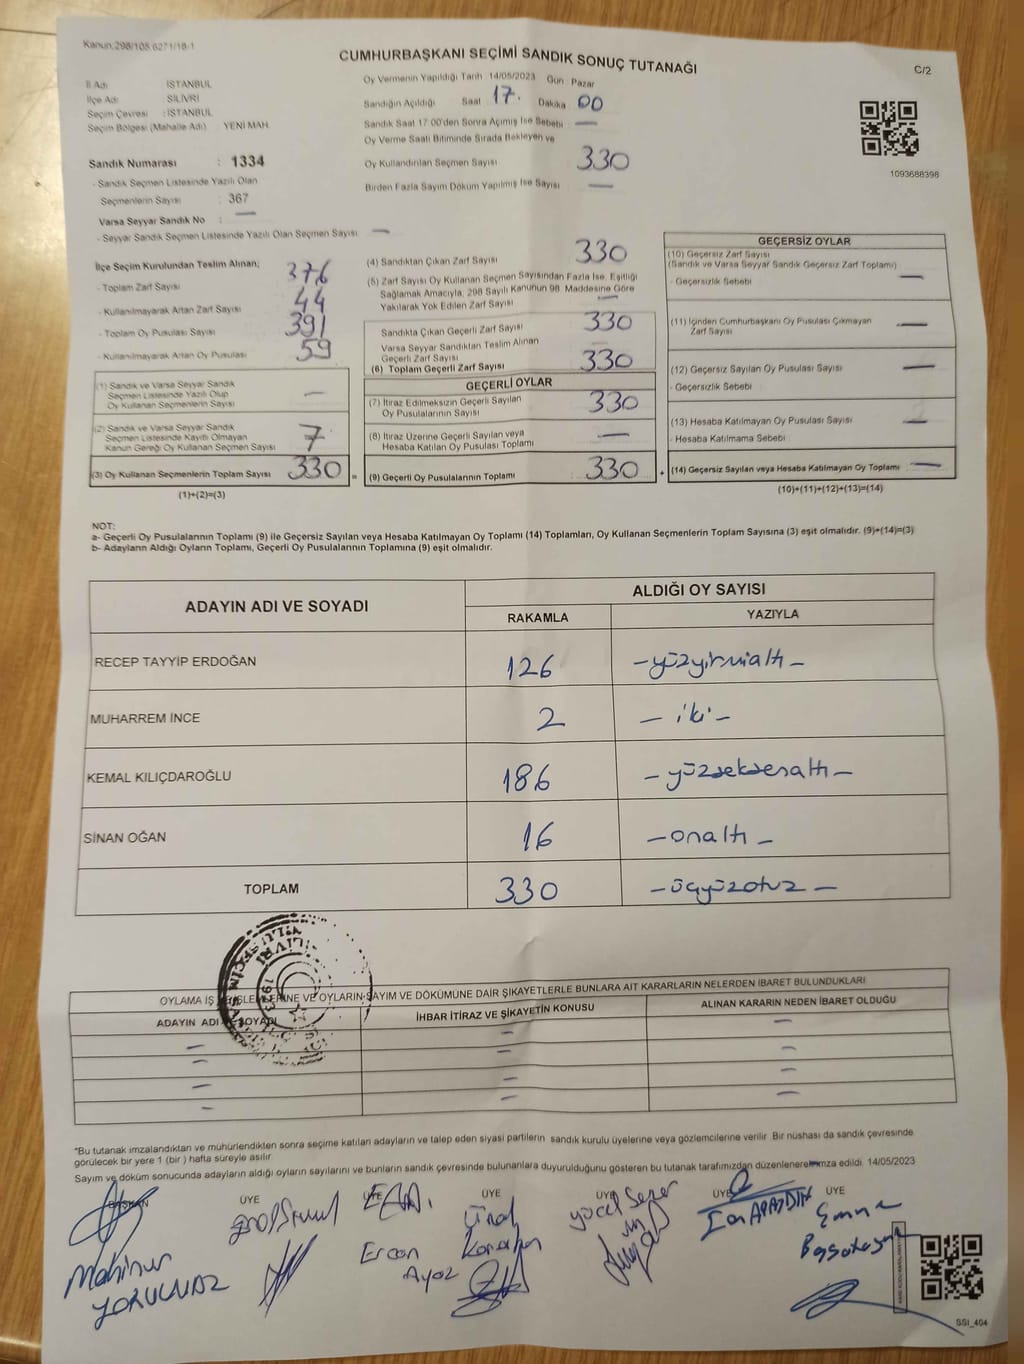 Kanun:298/105.6271/18-1
CUMHURBAŞKANI SEÇİMİ SANDIK SONUÇ TUTANAĞI
C/2
İl Adı : İSTANBUL
İlçe Adı : SİLİVRİ
Seçim Çevresi : İSTANBUL
Seçim Bölgesi (Mahalle Adı) : YENİ MAH.
Sandık Numarası : 1334
- Sandık Seçmen Listesinde Yazılı Olan
Seçmenlerin Sayısı : 367
Varsa Seyyar Sandık No : —
- Seyyar Sandık Seçmen Listesinde Yazılı Olan Seçmen Sayısı : —
Oy Vermenin Yapıldığı Tarih 14/05/2023 Gün Pazar
Sandığın Açıldığı Saat 17. Dakika 00
Sandık Saat 17:00'den Sonra Açımış İse Sebebi —
Oy Verme Saati Bitiminde Sırada Bekleyen ve
Oy Kullandırılan Seçmen Sayısı 330
Birden Fazla Sayım Döküm Yapılmış İse Sayısı —
1093688398
İlçe Seçim Kurulundan Teslim Alınan;
- Toplam Zarf Sayısı 376
- Kullanılmayarak Artan Zarf Sayısı 44
- Toplam Oy Pusulası Sayısı 391
- Kullanılmayarak Artan Oy Pusulası 59
(1) Sandık ve Varsa Seyyar Sandık
Seçmen Listesinde Yazılı Olup
Oy Kullanan Seçmenlerin Sayısı —
(2) Sandık ve Varsa Seyyar Sandık
Seçmen Listesinde Kayıtlı Olmayan
Kanun Gereği Oy Kullanan Seçmen Sayısı 7
(3) Oy Kullanan Seçmenlerin Toplam Sayısı 330 =
(1)+(2)=(3)
(4) Sandıktan Çıkan Zarf Sayısı 330
(5) Zarf Sayısı Oy Kullanan Seçmen Sayısından Fazla İse, Eşitliği
Sağlamak Amacıyla, 298 Sayılı Kanunun 98. Maddesine Göre
Yakılarak Yok Edilen Zarf Sayısı —
Sandıkta Çıkan Geçerli Zarf Sayısı 330
Varsa Seyyar Sandıktan Teslim Alınan
Geçerli Zarf Sayısı
(6) Toplam Geçerli Zarf Sayısı 330
GEÇERLİ OYLAR
(7) İtiraz Edilmeksizin Geçerli Sayılan
Oy Pusulalarının Sayısı 330
(8) İtiraz Üzerine Geçerli Sayılan veya
Hesaba Katılan Oy Pusulası Toplamı —
(9) Geçerli Oy Pusulalarının Toplamı 330 +
GEÇERSİZ OYLAR
(10) Geçersiz Zarf Sayısı
(Sandık ve Varsa Seyyar Sandık Geçersiz Zarf Toplamı)
- Geçersizlik Sebebi —
(11) İçinden Cumhurbaşkanı Oy Pusulası Çıkmayan
Zarf Sayısı —
(12) Geçersiz Sayılan Oy Pusulası Sayısı —
- Geçersizlik Sebebi
(13) Hesaba Katılmayan Oy Pusulası Sayısı —
- Hesaba Katılmama Sebebi
(14) Geçersiz Sayılan veya Hesaba Katılmayan Oy Toplamı —
(10)+(11)+(12)+(13)=(14)
NOT:
a- Geçerli Oy Pusulalarının Toplamı (9) ile Geçersiz Sayılan veya Hesaba Katılmayan Oy Toplamı (14) Toplamları, Oy Kullanan Seçmenlerin Toplam Sayısına (3) eşit olmalıdır. (9)+(14)=(3)
b- Adayların Aldığı Oyların Toplamı, Geçerli Oy Pusulalarının Toplamına (9) eşit olmalıdır.
ADAYIN ADI VE SOYADI
ALDIĞI OY SAYISI
RAKAMLA YAZIYLA
RECEP TAYYİP ERDOĞAN 126 -yüzyirmialtı-
MUHARREM İNCE 2 - iki -
KEMAL KILIÇDAROĞLU 186 -yüzseksenaltı-
SİNAN OĞAN 16 -onaltı-
TOPLAM 330 -üçyüzotuz-
OYLAMA İŞ VE İŞLEMLERİNE VE OYLARIN SAYIM VE DÖKÜMÜNE DAİR ŞİKAYETLERLE BUNLARA AİT KARARLARIN NELERDEN İBARET BULUNDUKLARI
ADAYIN ADI SOYADI İHBAR İTİRAZ VE ŞİKAYETİN KONUSU ALINAN KARARIN NEDEN İBARET OLDUĞU
*Bu tutanak imzalandıktan ve mühürlendikten sonra seçime katılan adayların ve talep eden siyasi partilerin sandık kurulu üyelerine veya gözlemcilerine verilir. Bir nüshası da sandık çevresinde
görülecek bir yere 1 (bir) hafta süreyle asılır.
Sayım ve döküm sonucunda adayların aldığı oyların sayılarını ve bunların sandık çevresinde bulunanlara duyurulduğunu gösteren bu tutanak tarafımızdan düzenlenerek imza edildi. 14/05/2023
BAŞKAN ÜYE ÜYE ÜYE ÜYE ÜYE ÜYE
Mahinur YORULMAZ
Ercan Ayaz
Ünal Karahan
Yücel Sezer
Emine
SSI_404